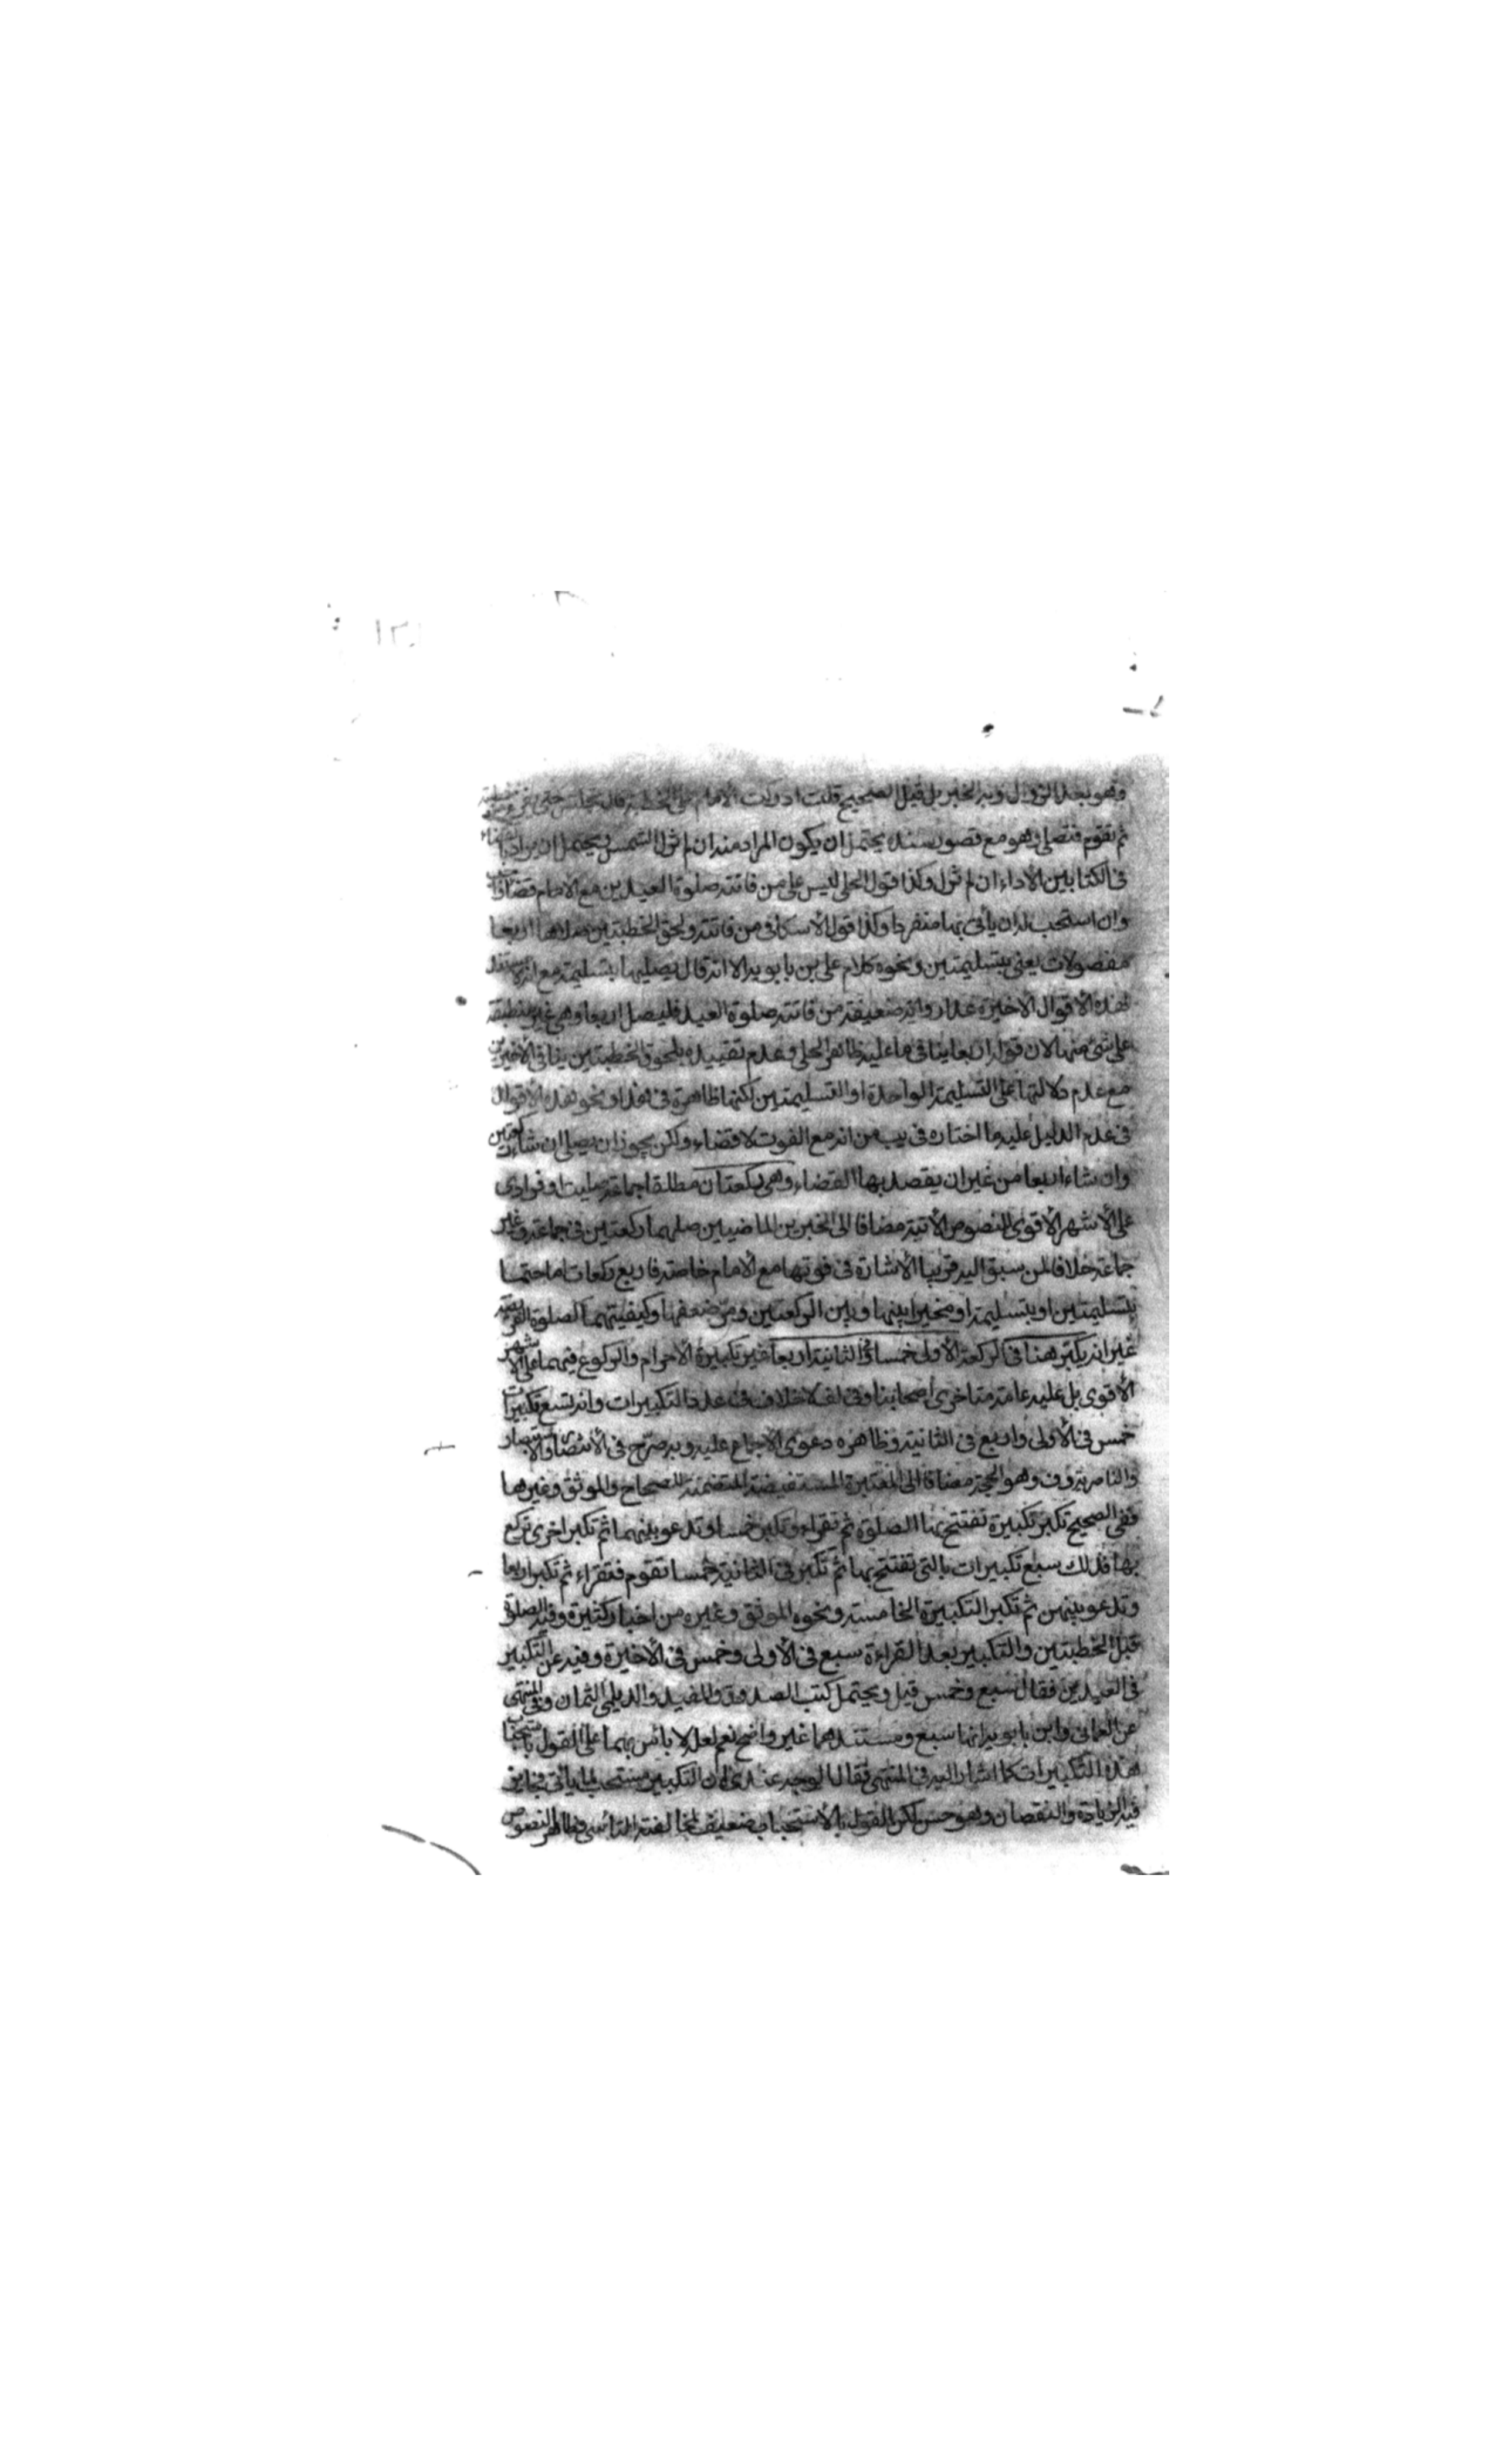 وهو بعد الزوال وبه الخبر بل قيل الصحيح قلت ادركت الامام على الخطبة قال تجلس حتى يفرغ من خطبته
ثم تقوم فتصلى وهو مع قصور سنده يحتمل ان يكون المراد منه ان لم تزل الشمس ويحتمل ان يراد بالقضاء
فى الكتابين الأداء ان لم تزل وكذا قول الحلى ليس على من فاتته صلوة العيدين مع الامام قضاء واجب
وان استحب له ان يأتى بها منفردا وكذا قول الأسكافى من فاتته ولحق الخطبتين صلاها اربعا
مفصولات يعنى بتسليمتين ونحوه كلام على بن بابويه الا انه قال يصليها بتسليمة مع انه لا مستند
لهذه الأقوال الاخيرة عدا رواية ضعيفة من فاتته صلوة العيد فليصل اربعا وهى غير منطبقة
على شئ منها لان قوله اربعا ينافى ما عليه ظاهر الحلى وعدم تقييده بلحوق الخطبتين ينافى الأخيرين
مع عدم دلالتها على التسليمة الواحدة او التسليمتين لكنها ظاهرة فى هذا ونحو هذه الأقوال
فى عدم الدليل عليه ما اختاره فى يب من انه مع الفوت لا قضاء ولكن يجوز ان يصلى ان شاء ركعتين
وان شاء اربعا من غير ان يقصد بها القضاء وهى ركعتان مطلقا جماعة صليت او فرادى
على الأشهر الأقوى للنصوص الأتية مضافا الى الخبرين الماضيين صلهما ركعتين فى جماعة وغير
جماعة خلافا لمن سبق اليه قريبا الأشارة فى فوتها مع الأمام خاصة فاربع ركعات اما حتما
بتسليمتين او بتسليمة او مخيرا بينها وبين الركعتين ومرّ ضعفها وكيفيتهما كصلوة الفريضة
غير انه يكبّر هنا فى الركعة الأولى خمسا وفى الثانية اربعا غير تكبيرة الأحرام والركوع فيهما على الأشهر
الأقوى بل عليه عامة متأخرى اصحابنا وفى لف لا خلاف فى عدد التكبيرات وانه تسع تكبيرات
خمس فى الأولى واربع فى الثانية وظاهره دعوى الأجماع عليه وبه صرّح فى الأنتصار والأستبصار
والناصرية وف وهو الحجة مضافا الى المعتبرة المستفيضة المتضمنة للصحاح والموثق وغيرها
ففى الصحيح تكبر تكبيرة تفتتح بها الصلوة ثم تقراء وتكبر خمسا وتدعو بينهما ثم تكبر اخرى تركع
بها فذلك سبع تكبيرات بالتى تفتتح بها ثم تكبر فى الثانية خمسا تقوم فتقراء ثم تكبر اربعا
وتدعو بينهن ثم تكبر التكبيرة الخامسة ونحوه الموثق وغيره من اخبار كثيرة وفيه الصلوة
قبل الخطبتين والتكبير بعد القراءة سبع فى الأولى وخمس فى الأخيرة وفيه عن التكبير
فى العيدين فقال سبع وخمس قيل ويحتمل كتب الصدوق والمفيد والديلمى الثمان وفى المنتهى
عن العمانى وابن بابويه انها سبع ومستندهما غير واضح نعم لعله لا بأس بهما على القول باستحباب
هذه التكبيرات كما اشار اليه فى المنتهى فقال الوجه عندى ان التكبير مستحب لما يأتى فجايز
فيه الزيادة والنقصان وهو حسن لكن القول بالأستحباب ضعيف لمخالفته التأسى وظاهر النصوص